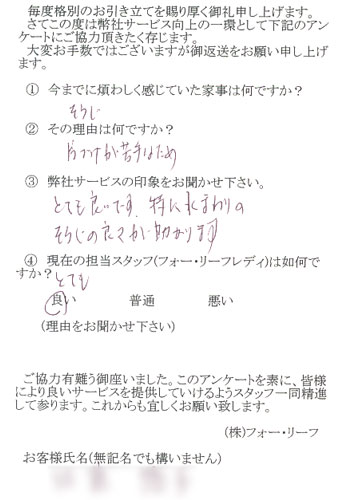 毎度格別のお引き立てを賜り厚く御礼申し上げます。
さてこの度は弊社サービス向上の一環として下記のアン
ケートにご協力頂きたく存じます。
大変お手数ではございますが御返送をお願い申し上げ
ます。
① 今までに煩わしく感じていた家事は何ですか？
そうじ
② その理由は何ですか？
片づけが苦手なため
③ 弊社サービスの印象をお聞かせ下さい。
とても良いです。特に水まわりの
そうじの良さが助かります
④ 現在の担当スタッフ(フォー・リーフレディ)は如何で
すか？
とても
良い 普通 悪い
(理由をお聞かせ下さい)
ご協力有難う御座いました。このアンケートを素に、皆様
により良いサービスを提供していけるようスタッフ一同精進
して参ります。これからも宜しくお願い致します。
(株)フォー・リーフ
お客様氏名(無記名でも構いません)